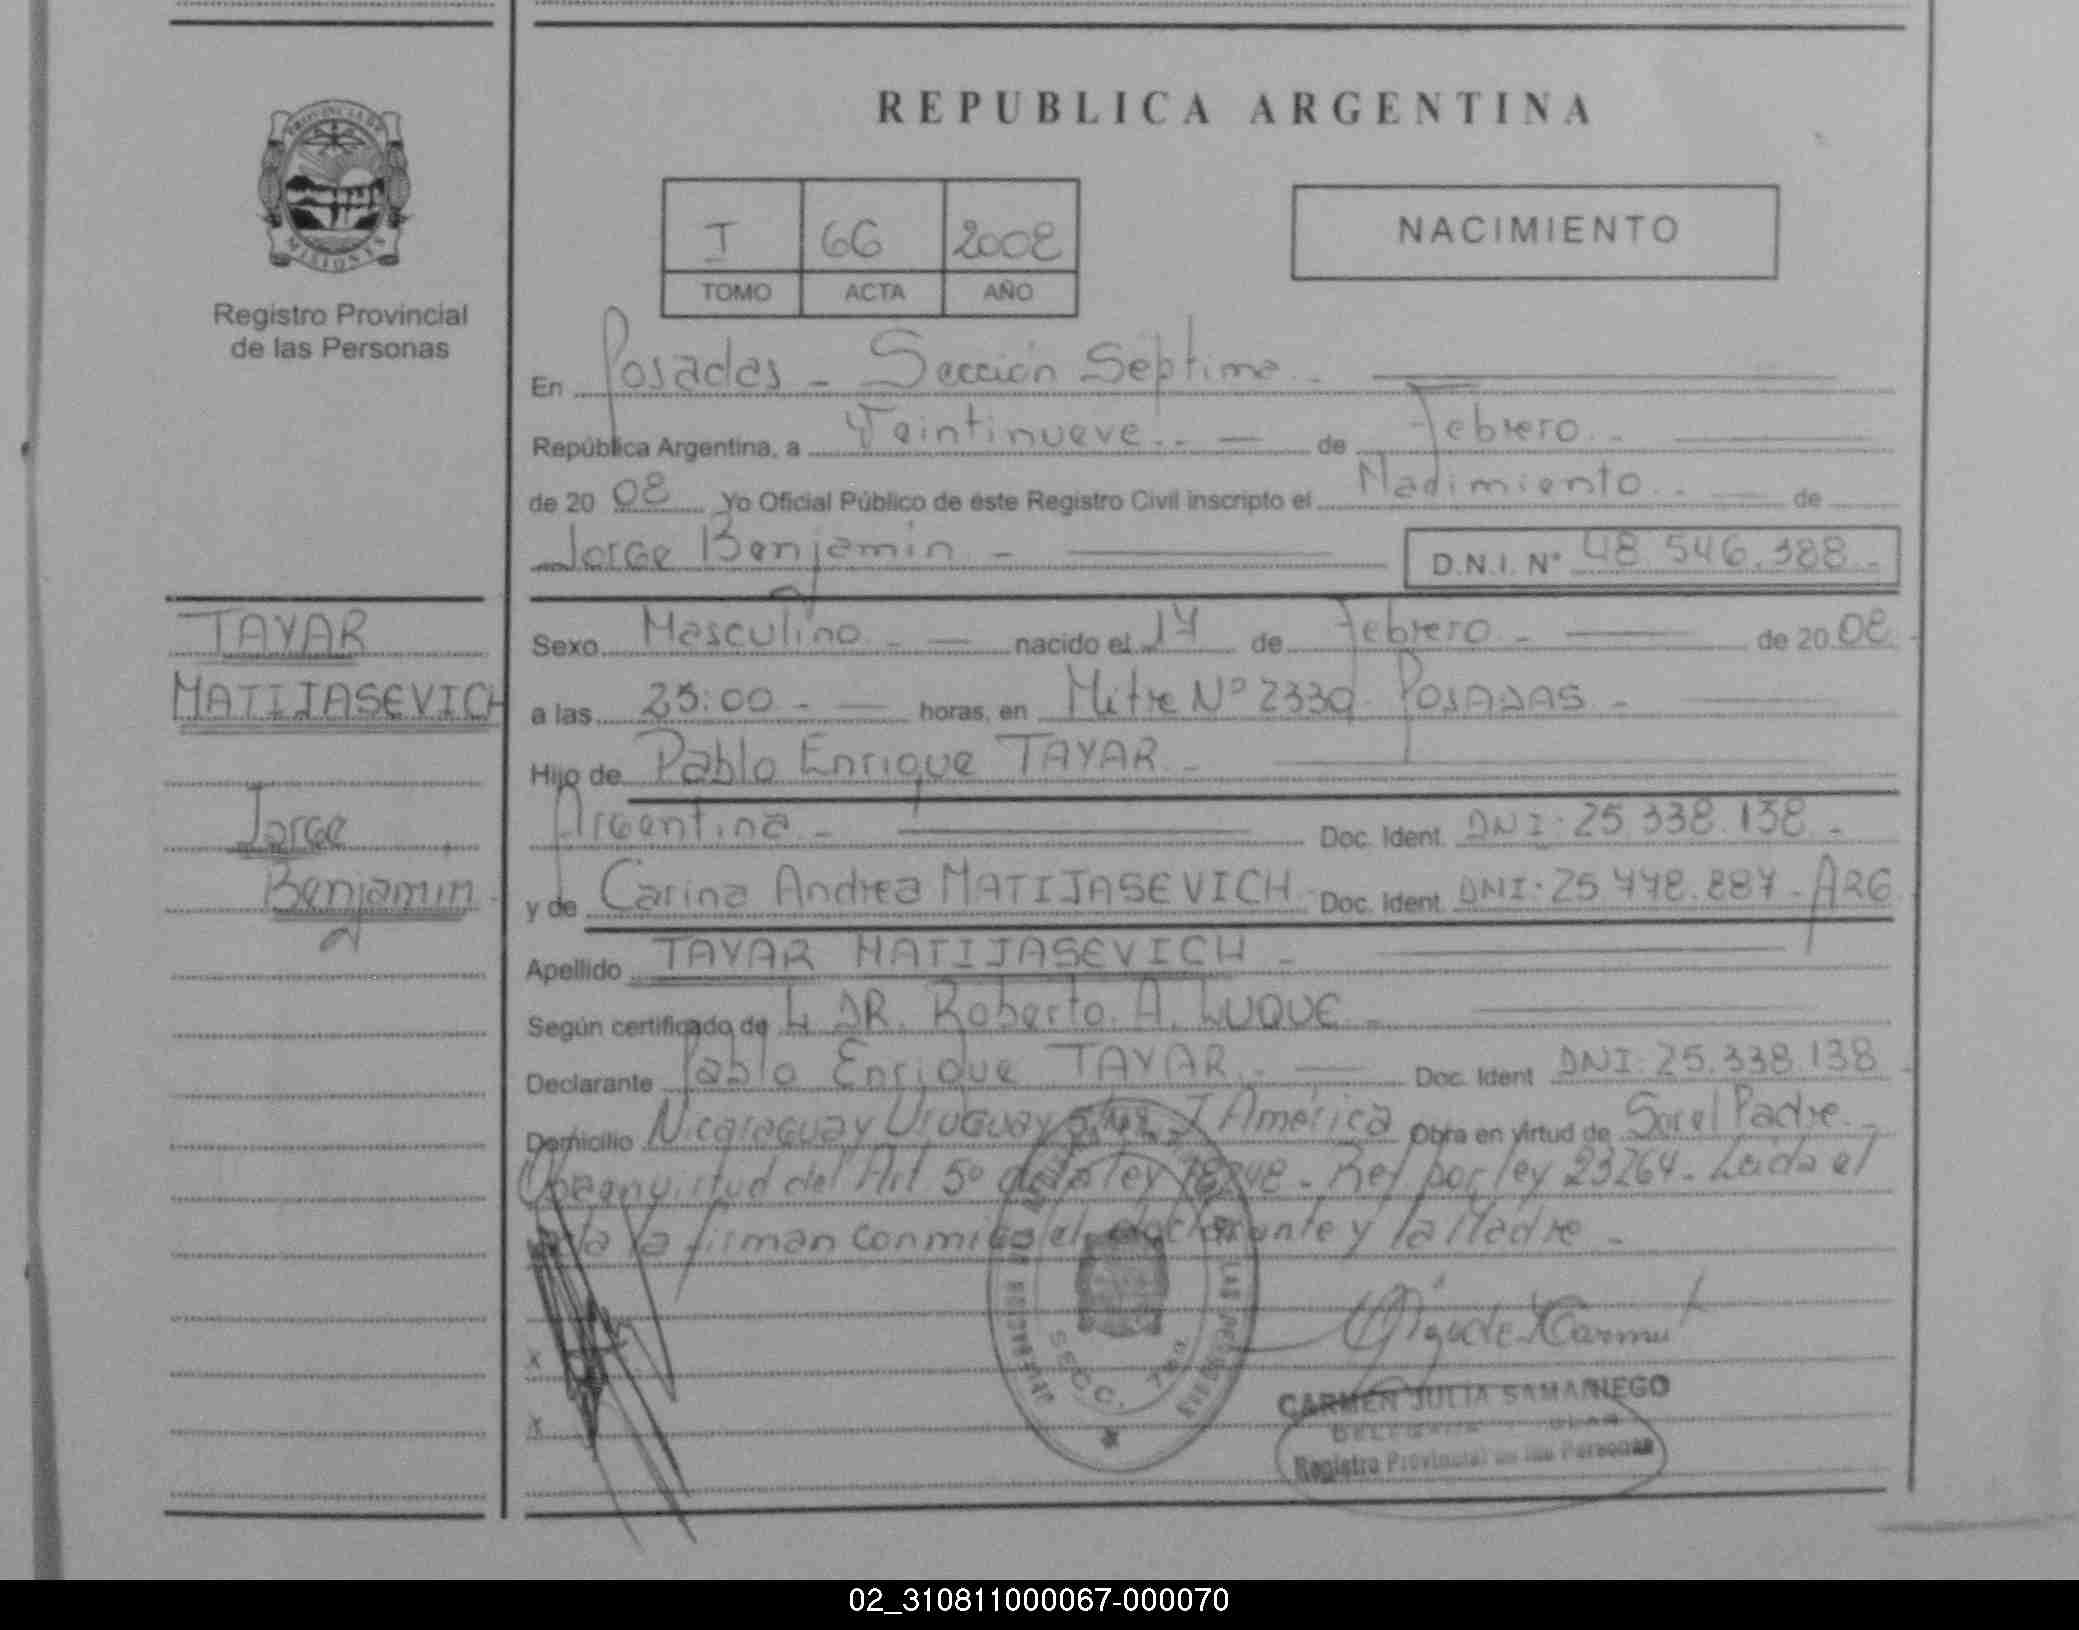 REPUBLICA ARGENTINA
PROVINCIA DE MISIONES
Registro Provincial
de las Personas
I 66 2008
TOMO ACTA AÑO
NACIMIENTO
En Posadas - Sección Septima -
República Argentina, a Veintinueve - de Febrero -
de 2008 Yo Oficial Público de éste Registro Civil inscripto el Nacimiento - de
Jorge Benjamin - D.N.I. N° 48.546.388.-
TAYAR
MATIJASEVICH
Jorge
Benjamin
Sexo Masculino - nacido el 17 de Febrero - de 2008
a las 23:00 - horas, en Mitre N° 2339 POSADAS -
Hijo de Pablo Enrique TAYAR -
Argentina - Doc. Ident. DNI: 25.338.138 -
y de Carina Andrea MATIJASEVICH Doc. Ident. DNI: 25.448.887 - ARG
Apellido TAYAR MATIJASEVICH -
Según certificado de DR. Roberto A. LUQUE -
Declarante Pablo Enrique TAYAR - Doc. Ident DNI: 25.338.138
Domicilio Nicaragua y Uruguay América Obra en virtud de Ser el Padre -
virtud del Art. 5° de la ley 18248 - Ref por ley 23264 - Leida el
acta la firman conmigo el declarante y la Madre -
x
x
SECC. 7ma
CARMEN JULIA SAMANIEGO
Registro Provincial de las Personas
02_310811000067-000070